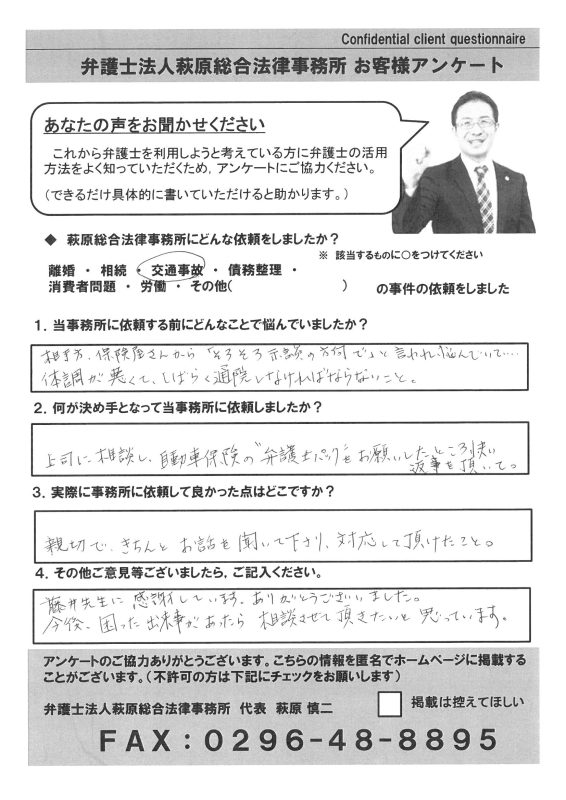 Confidential client questionnaire
弁護士法人萩原総合法律事務所 お客様アンケート
あなたの声をお聞かせください
これから弁護士を利用しようと考えている方に弁護士の活用
方法をよく知っていただくため，アンケートにご協力ください。
（できるだけ具体的に書いていただけると助かります。）
◆ 萩原総合法律事務所にどんな依頼をしましたか？
※ 該当するものに○をつけてください
離婚 ・ 相続 ・ 交通事故 ・ 債務整理 ・
消費者問題 ・ 労働 ・ その他( ) の事件の依頼をしました
１．当事務所に依頼する前にどんなことで悩んでいましたか？
相手方、保険屋さんから「そろそろ示談の方向で」と言われ悩んでいて....
体調が悪くて、しばらく通院しなければならないこと。
２．何が決め手となって当事務所に依頼しましたか？
上司に相談し、自動車保険の"弁護士パック"をお願いしたところ快い
返事を頂いて。
３．実際に事務所に依頼して良かった点はどこですか？
親切で、きちんとお話を聞いて下さり、対応して頂けたこと。
４．その他ご意見等ございましたら，ご記入ください。
藤井先生に感謝しています。ありがとうございました。
今後、困った出来事があったら相談させて頂きたいと思っています。
アンケートのご協力ありがとうございます。こちらの情報を匿名でホームページに掲載する
ことがございます。（不許可の方は下記にチェックをお願いします）
弁護士法人萩原総合法律事務所 代表 萩原 慎二
掲載は控えてほしい
ＦＡＸ：０２９６－４８－８８９５